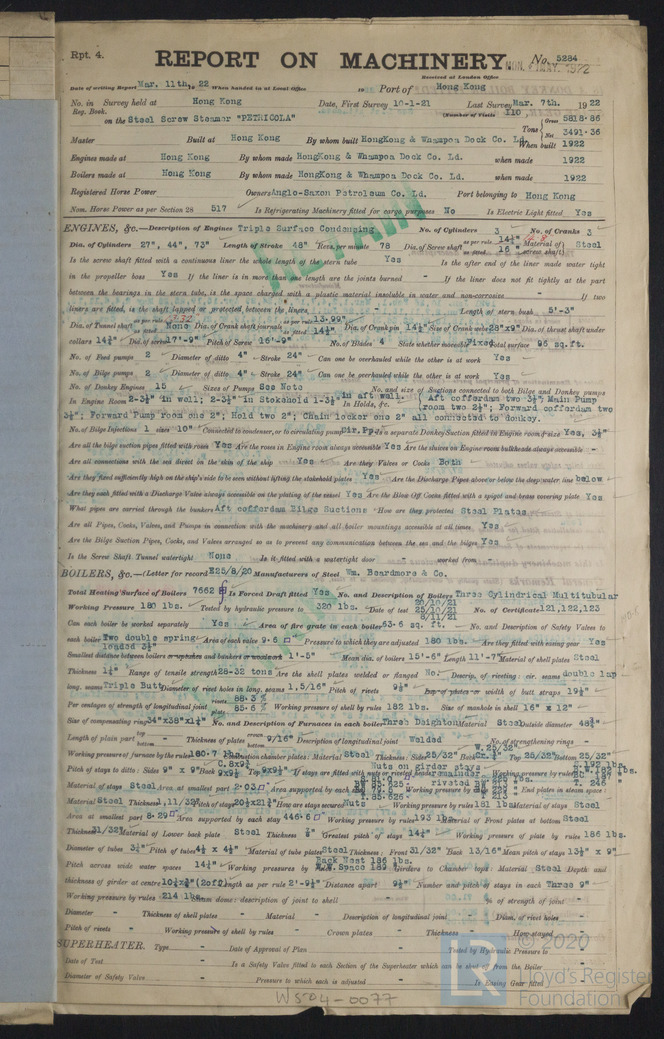 Rpt. 4.
REPORT ON MACHINERY
No. 5284
MON. 1 MAY. 1922
Received at London Office
Date of writing Report Mar. 11th, 19 22 When handed in at Local Office 19 Port of Hong Kong
No. in Survey held at Hong Kong Date, First Survey 10-1-21 Last Survey Mar. 7th. 19 22
Reg. Book. (Number of Visits 110
on the Steel Screw Steamer "PETRICOLA" Tons { Gross 5818.86
Net 3491.36
Master Built at Hong Kong By whom built HongKong & Whampoa Dock Co. Ld. When built 1922
Engines made at Hong Kong By whom made HongKong & Whampoa Dock Co. Ld. when made 1922
Boilers made at Hong Kong By whom made HongKong & Whampoa Dock Co. Ld. when made 1922
Registered Horse Power Owners Anglo-Saxon Petroleum Co. Ld. Port belonging to Hong Kong
Nom. Horse Power as per Section 28 517 Is Refrigerating Machinery fitted for cargo purposes No Is Electric Light fitted Yes
ENGINES, &c.—Description of Engines Triple Surface Condensing No. of Cylinders 3 No. of Cranks 3
Dia. of Cylinders 27", 44", 73" Length of Stroke 48" Revs. per minute 78 Dia. of Screw shaft as per rule 14¾" as fitted 16" Material of screw shaft Steel
Is the screw shaft fitted with a continuous liner the whole length of the stern tube Yes Is the after end of the liner made water tight
in the propeller boss Yes If the liner is in more than one length are the joints burned - If the liner does not fit tightly at the part
between the bearings in the stern tube, is the space charged with a plastic material insoluble in water and non-corrosive - If two
liners are fitted, is the shaft lapped or protected between the liners - Length of stern bush 5'-3"
Dia. of Tunnel shaft as per rule as fitted None Dia. of Crank shaft journals as per rule 13.99" as fitted 14¼" Dia. of Crank pin 14¼" Size of Crank webs 28"x9" Dia. of thrust shaft under
collars 14¼" Dia. of screw 17'-9" Pitch of Screw 16'-9" No. of Blades 4 State whether moveable Fixed Total surface 96 sq.ft.
No. of Feed pumps 2 Diameter of ditto 4" Stroke 24" Can one be overhauled while the other is at work Yes
No. of Bilge pumps 2 Diameter of ditto 4" Stroke 24" Can one be overhauled while the other is at work Yes
No. of Donkey Engines 15 Sizes of Pumps See Note No. and size of Suctions connected to both Bilge and Donkey pumps
In Engine Room 2-3½" in well; 2-3½" in Stokehold 1-3½ in aft well. In Holds, &c. Aft cofferdam two 3½; Main Pump
room two 2½"; Forward cofferdam two
3½"; Forward Pump room one 2"; Hold two 2"; Chain locker one 2" all connected to donkey.
No. of Bilge Injections 1 sizes 10" Connected to condenser, or to circulating pump Dir.Pp. Is a separate Donkey Suction fitted in Engine room & size Yes, 3½"
Are all the bilge suction pipes fitted with roses Yes Are the roses in Engine room always accessible Yes Are the sluices on Engine room bulkheads always accessible -
Are all connections with the sea direct on the skin of the ship Yes Are they Valves or Cocks Both
Are they fixed sufficiently high on the ship's side to be seen without lifting the stokehold plates Yes Are the Discharge Pipes above or below the deep water line below
Are they each fitted with a Discharge Valve always accessible on the plating of the vessel Yes Are the Blow Off Cocks fitted with a spigot and brass covering plate Yes
What pipes are carried through the bunkers Aft cofferdam Bilge Suctions How are they protected Steel Plates
Are all Pipes, Cocks, Valves, and Pumps in connection with the machinery and all boiler mountings accessible at all times Yes
Are the Bilge Suction Pipes, Cocks, and Valves arranged so as to prevent any communication between the sea and the bilges Yes
Is the Screw Shaft Tunnel watertight None Is it fitted with a watertight door - worked from
BOILERS, &c.—(Letter for record E25/8/20 Manufacturers of Steel Wm. Beardmore & Co.
Total Heating Surface of Boilers 7662 Is Forced Draft fitted Yes No. and Description of Boilers Three Cylindrical Multitubular
Working Pressure 180 lbs. Tested by hydraulic pressure to 320 lbs. Date of test 20/10/21 25/10/21 8/11/21 No. of Certificate 121,122,123
Can each boiler be worked separately Yes Area of fire grate in each boiler 63.6 sq. ft. No. and Description of Safety Valves to
each boiler Two double spring loaded 3½" Area of each valve 9.6 □" Pressure to which they are adjusted 180 lbs. Are they fitted with easing gear Yes
Smallest distance between boilers or uptakes and bunkers or woodwork 1'-5" Mean dia. of boilers 15'-6" Length 11'-7" Material of shell plates Steel
Thickness 1¼" Range of tensile strength 28-32 tons Are the shell plates welded or flanged No. Descrip. of riveting: cir. seams double lap
long. seams Triple Butt Diameter of rivet holes in long. seams 1.5/16" Pitch of rivets 9⅛" Lap of plates or width of butt straps 19½"
Per centages of strength of longitudinal joint rivets 88.3 % plates 85.6 % Working pressure of shell by rules 182 lbs. Size of manhole in shell 16" x 12"
Size of compensating ring 34"x38"x1¼" No. and Description of Furnaces in each boiler Three Deighton Material Steel Outside diameter 48¾"
Length of plain part top bottom - Thickness of plates crown bottom 9/16" Description of longitudinal joint Welded No. of strengthening rings -
Working pressure of furnace by the rules 180.7 lbs. Combustion chamber plates: Material Steel Thickness: Sides 25/32" Back W.25/32" Top 25/32" Bottom 25/32"
Pitch of stays to ditto: Sides 9" x 9" Back C.8x9¼ 9x9¼ Top 9x9¼" If stays are fitted with nuts or riveted heads Nuts on girder stays remainder riveted Working pressure by rules
Material of stays Steel Area at smallest part 2.03 □" Area supported by each stay Working pressure by rules End plates in steam space:
Material Steel Thickness 1,11/32" Pitch of stays 20½x21¾" How are stays secured Nuts Working pressure by rules 181 lbs. Material of stays Steel
Area at smallest part 8.29 □" Area supported by each stay 446.6 □" Working pressure by rules 193 lbs. Material of Front plates at bottom Steel
Thickness 31/32" Material of Lower back plate Steel Thickness ⅞" Greatest pitch of stays 14¼" Working pressure of plate by rules 186 lbs.
Diameter of tubes 3¼" Pitch of tubes 4½ x 4½" Material of tube plates Steel Thickness: Front 31/32" Back 13/16" Mean pitch of stays 13½" x 9"
Pitch across wide water spaces 14¼" Working pressures by rules Back West 186 lbs. W.W. Space 189 Girders to Chamber tops: Material Steel Depth and
thickness of girder at centre 10½x¾"(2off) Length as per rule 2'-9½" Distance apart 9½" Number and pitch of stays in each Three 9"
Working pressure by rules 214 lbs. Steam dome: description of joint to shell - % of strength of joint -
Diameter - Thickness of shell plates - Material - Description of longitudinal joint - Diam. of rivet holes -
Pitch of rivets - Working pressure of shell by rules - Crown plates - Thickness - How stayed -
SUPERHEATER. Type - Date of Approval of Plan - Tested by Hydraulic Pressure to -
Date of Test - Is a Safety Valve fitted to each Section of the Superheater which can be shut off from the Boiler -
Diameter of Safety Valve - Pressure to which each is adjusted - Is Easing Gear fitted -
W504-0077
© 2020
Lloyd's Register
Foundation